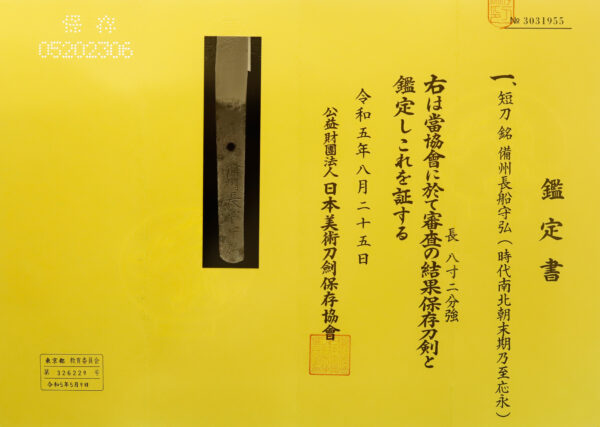 № 3031955
鑑定書
一、短刀 銘 備州長船守弘(時代南北朝末期乃至応永)
長 八寸二分強
右は當協會に於て審査の結果保存刀剣と
鑑定しこれを証する
令和五年八月二十五日
公益財團法人 日本美術刀劍保存協會
保存
05202306
東京都 教育委員会
第 326229 号
令和5年5月9日